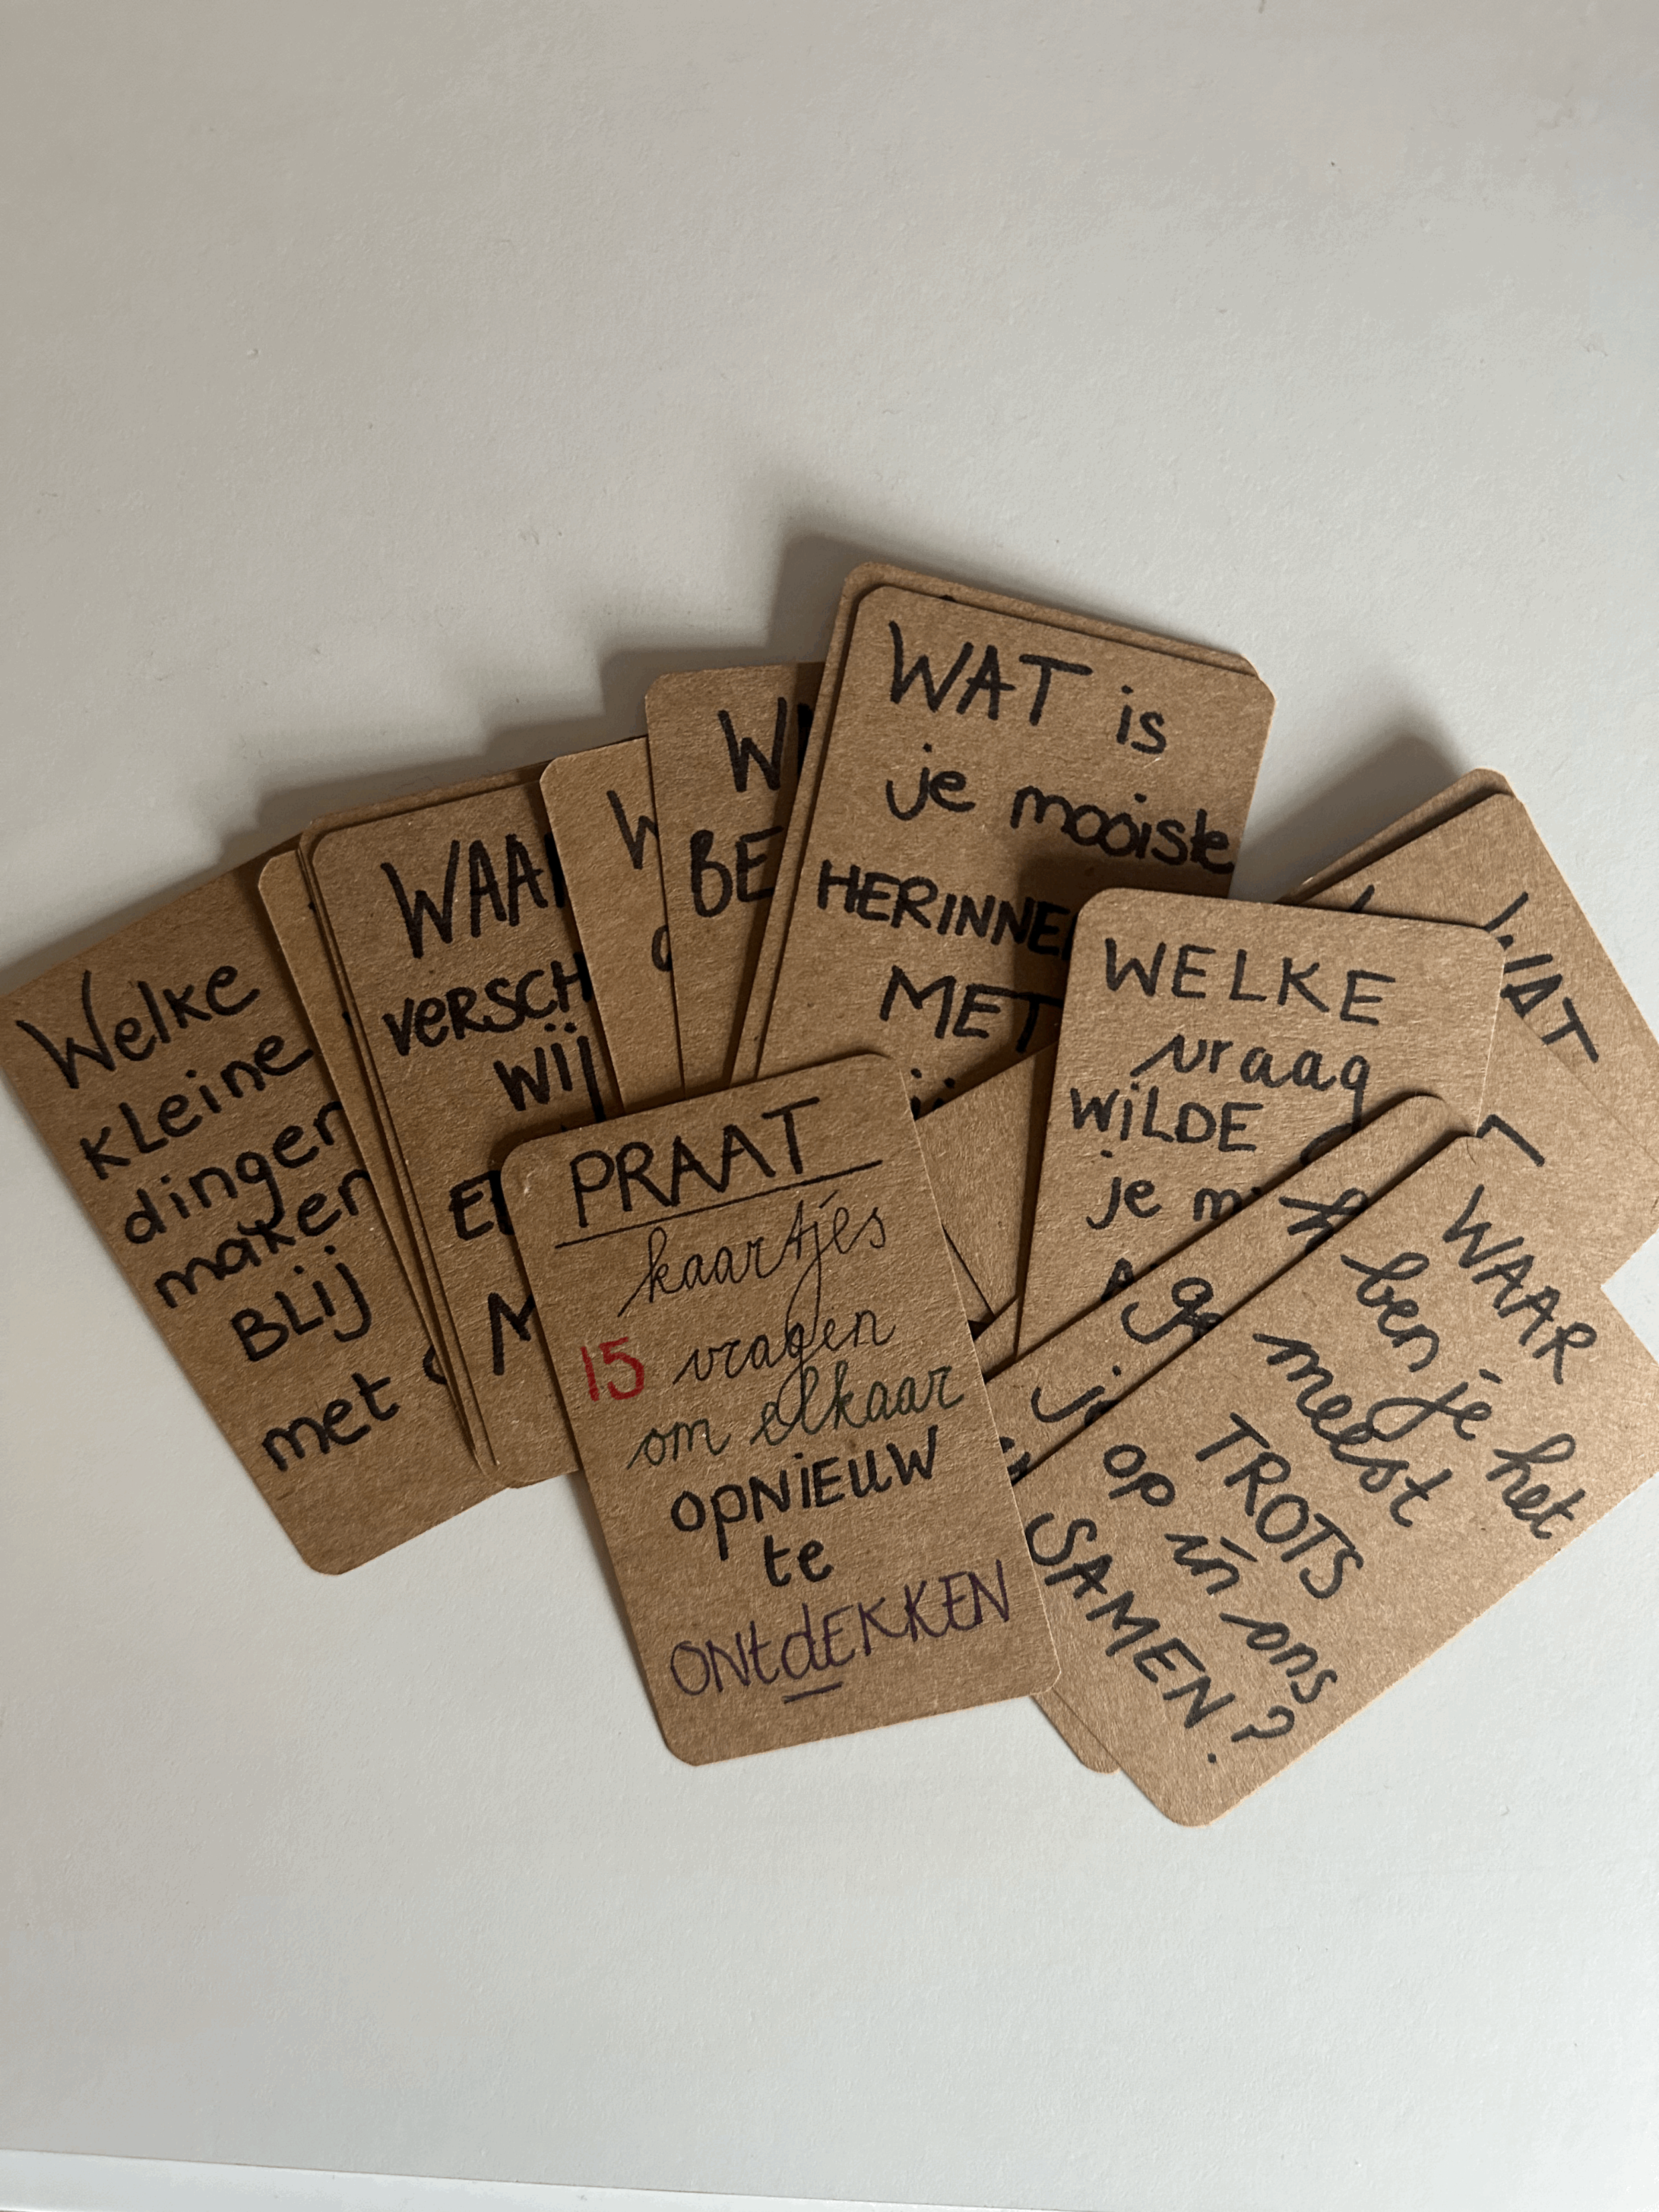 Welke
kleine
dingen
maken
BLIJ
met
WAA
VERSCH
wij
W
BE
WAT is
je mooiste
HERINNE
MET
WELKE
vraag
WILDE
je m
WAT
PRAAT
kaartjes
15 vragen
om elkaar
OPNIEUW
te
ONTdEKKEN
WAAR
ben je het
meest
TROTS
op in ons
SAMEN?